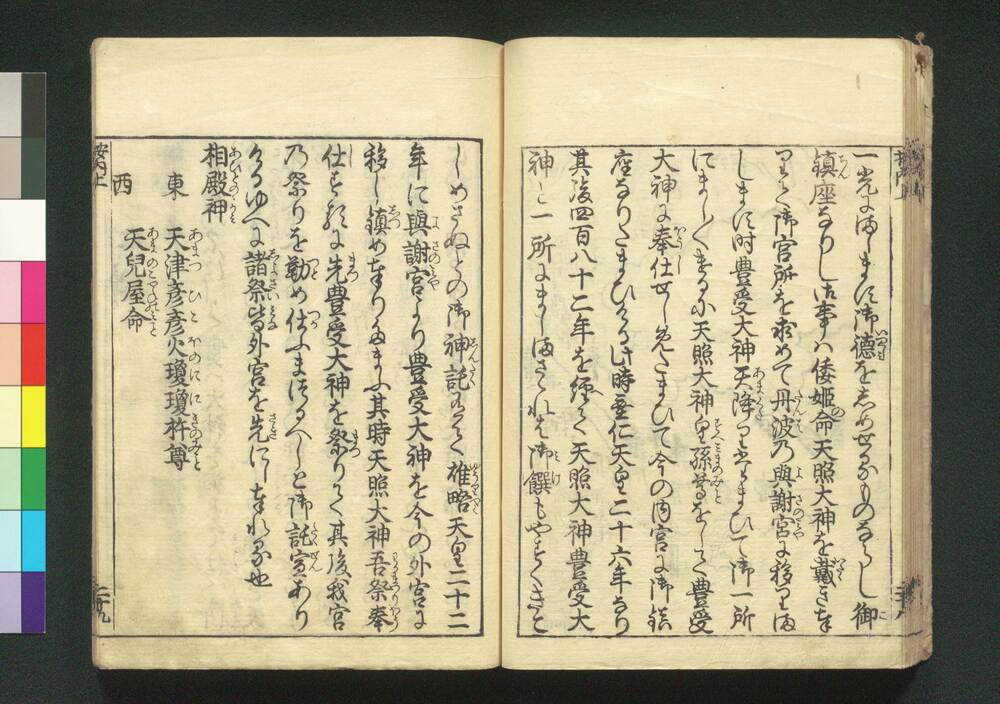 一光にましまして御徳をしめせるものなるへし御
鎮座なりし御事ハ倭姫命天照大神を戴き奉
りて御宮所を求めて丹波乃與謝宮に移りま
しまし時豊受大神天降りたまひて御一所
にましましけるに天照大神皇孫尊をして豊受
大神に奉仕せしめたまひて今の内宮に御鎮
座なりたまひける此時垂仁天皇二十六年なり
其後四百八十二年を経て天照大神豊受大
神と一所にましまさされは御饌もやすくきこ
しめさぬとの御神託にて雄略天皇二十二
年に與謝宮より豊受大神を今の外宮に
移し鎮め奉りたまふ其時天照大神吾祭奉
仕する時に先豊受大神を祭りて其後我宮
乃祭りを勤め仕ふまつるへしと御託宣あり
けるゆへに諸祭皆外宮を先にし奉れる也
相殿神
東 天津彦彦火瓊瓊杵尊
西 天兒屋命